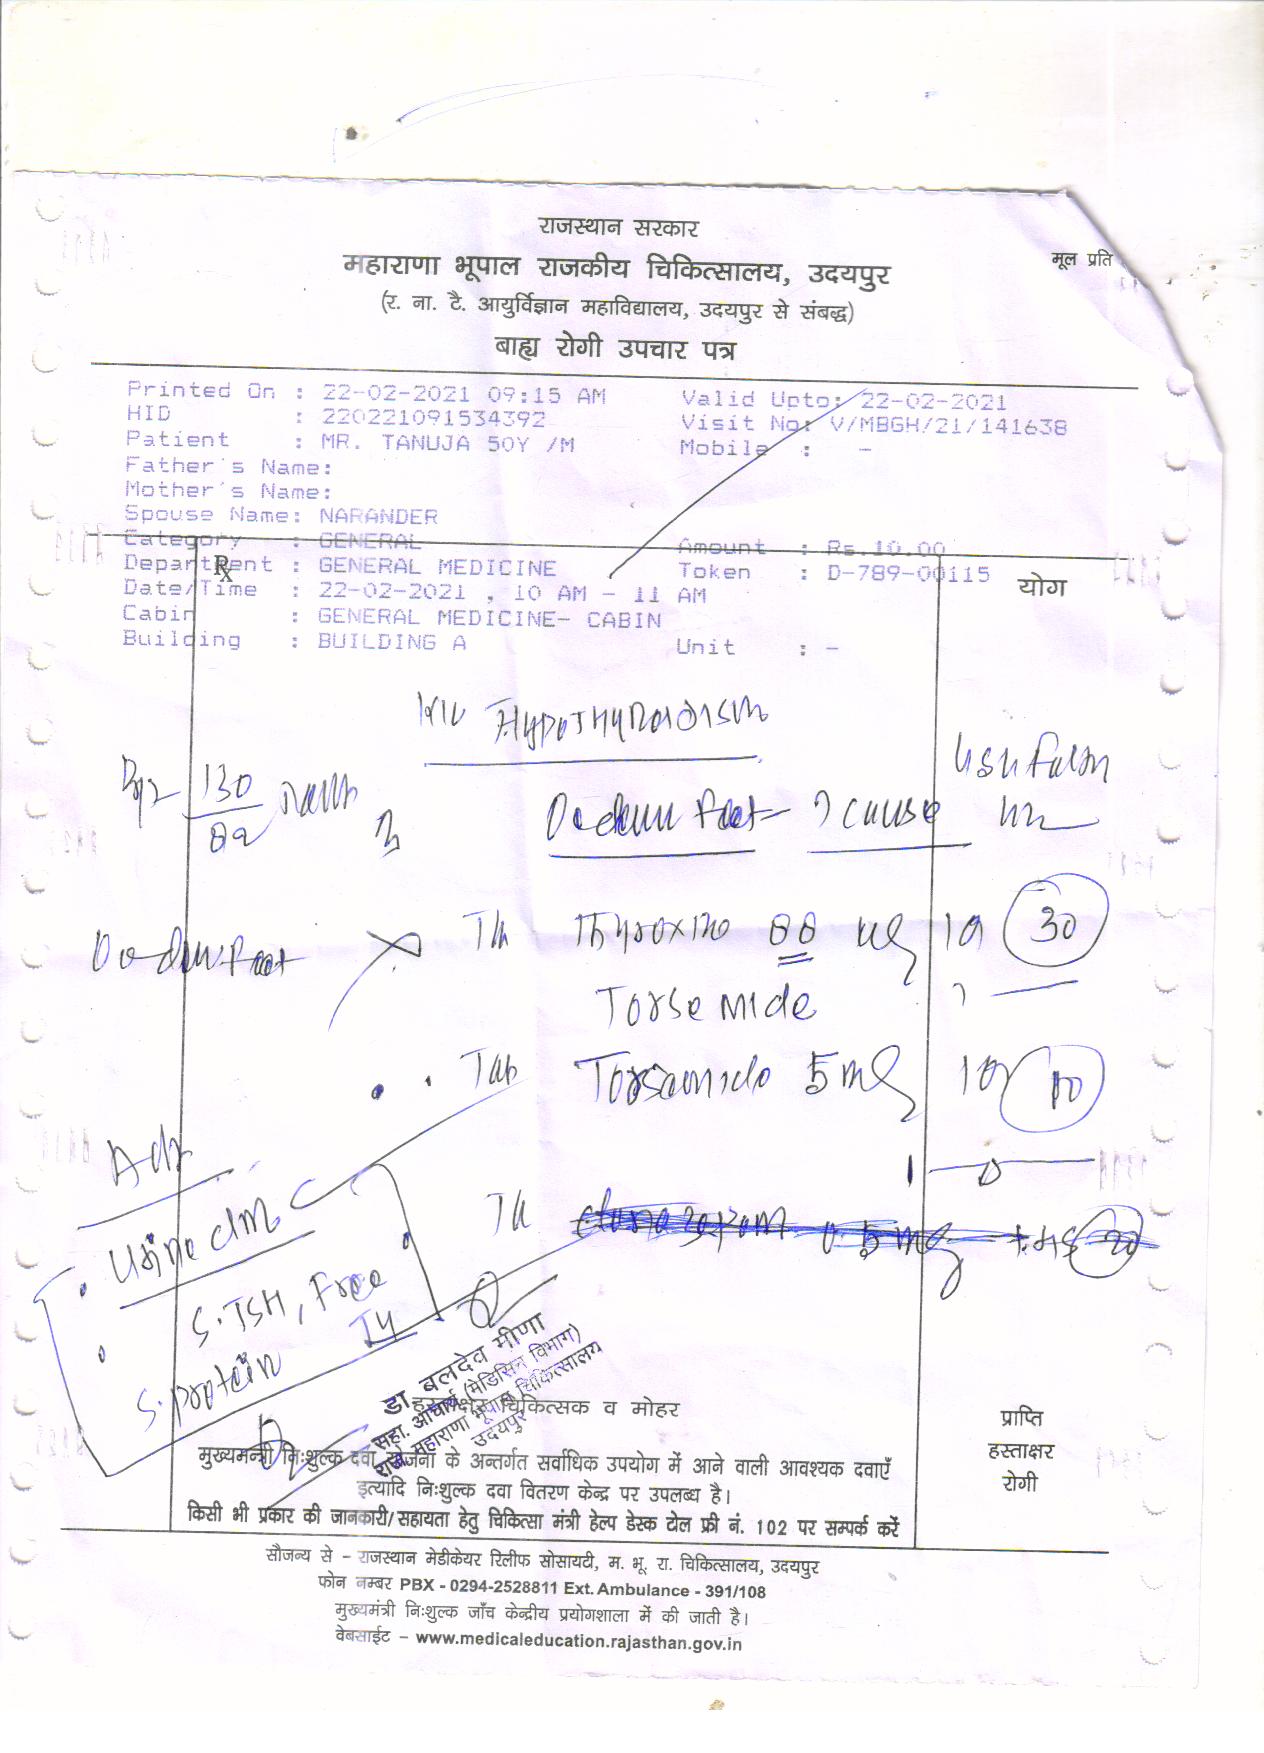 राजस्थान सरकार
महाराणा भूपाल राजकीय चिकित्सालय, उदयपुर
मूल प्रति
(र. ना. टै. आयुर्विज्ञान महाविद्यालय, उदयपुर से संबद्ध)
बाह्य रोगी उपचार पत्र
Printed On : 22-02-2021 09:15 AM Valid Upto: 22-02-2021
HID : 220221091534392 Visit No: V/MBGH/21/141638
Patient : MR. TANUJA 50Y /M Mobile : -
Father's Name:
Mother's Name:
Spouse Name: NARANDER
Category : GENERAL Amount : Rs.10.00
Department : GENERAL MEDICINE Token : D-789-00115
Rx योग
Date/Time : 22-02-2021 , 10 AM - 11 AM
Cabin : GENERAL MEDICINE- CABIN
Building : BUILDING A Unit : -
HypoThyroidism
130
82
feet - ? cause
Thyroxine 88 ug 30
Torsemide
Tab Torsemide 5mg 10
Adv
Urine c/m
S. TSH, Free
T4
S. protein
डा बलदेव मीणा
सह. आचार्य (मेडिसिन विभाग)
महाराणा भूपाल चिकित्सालय
उदयपुर
हस्ताक्षर चिकित्सक व मोहर
प्राप्ति
हस्ताक्षर
रोगी
मुख्यमन्त्री निःशुल्क दवा योजना के अन्तर्गत सर्वाधिक उपयोग में आने वाली आवश्यक दवाएँ
इत्यादि निःशुल्क दवा वितरण केन्द्र पर उपलब्ध है।
किसी भी प्रकार की जानकारी/सहायता हेतु चिकित्सा मंत्री हेल्प डेस्क टोल फ्री नं. 102 पर सम्पर्क करें
सौजन्य से - राजस्थान मेडीकेयर रिलीफ सोसायटी, म. भू. रा. चिकित्सालय, उदयपुर
फोन नम्बर PBX - 0294-2528811 Ext. Ambulance - 391/108
मुख्यमंत्री निःशुल्क जाँच केन्द्रीय प्रयोगशाला में की जाती है।
वेबसाईट - www.medicaleducation.rajasthan.gov.in